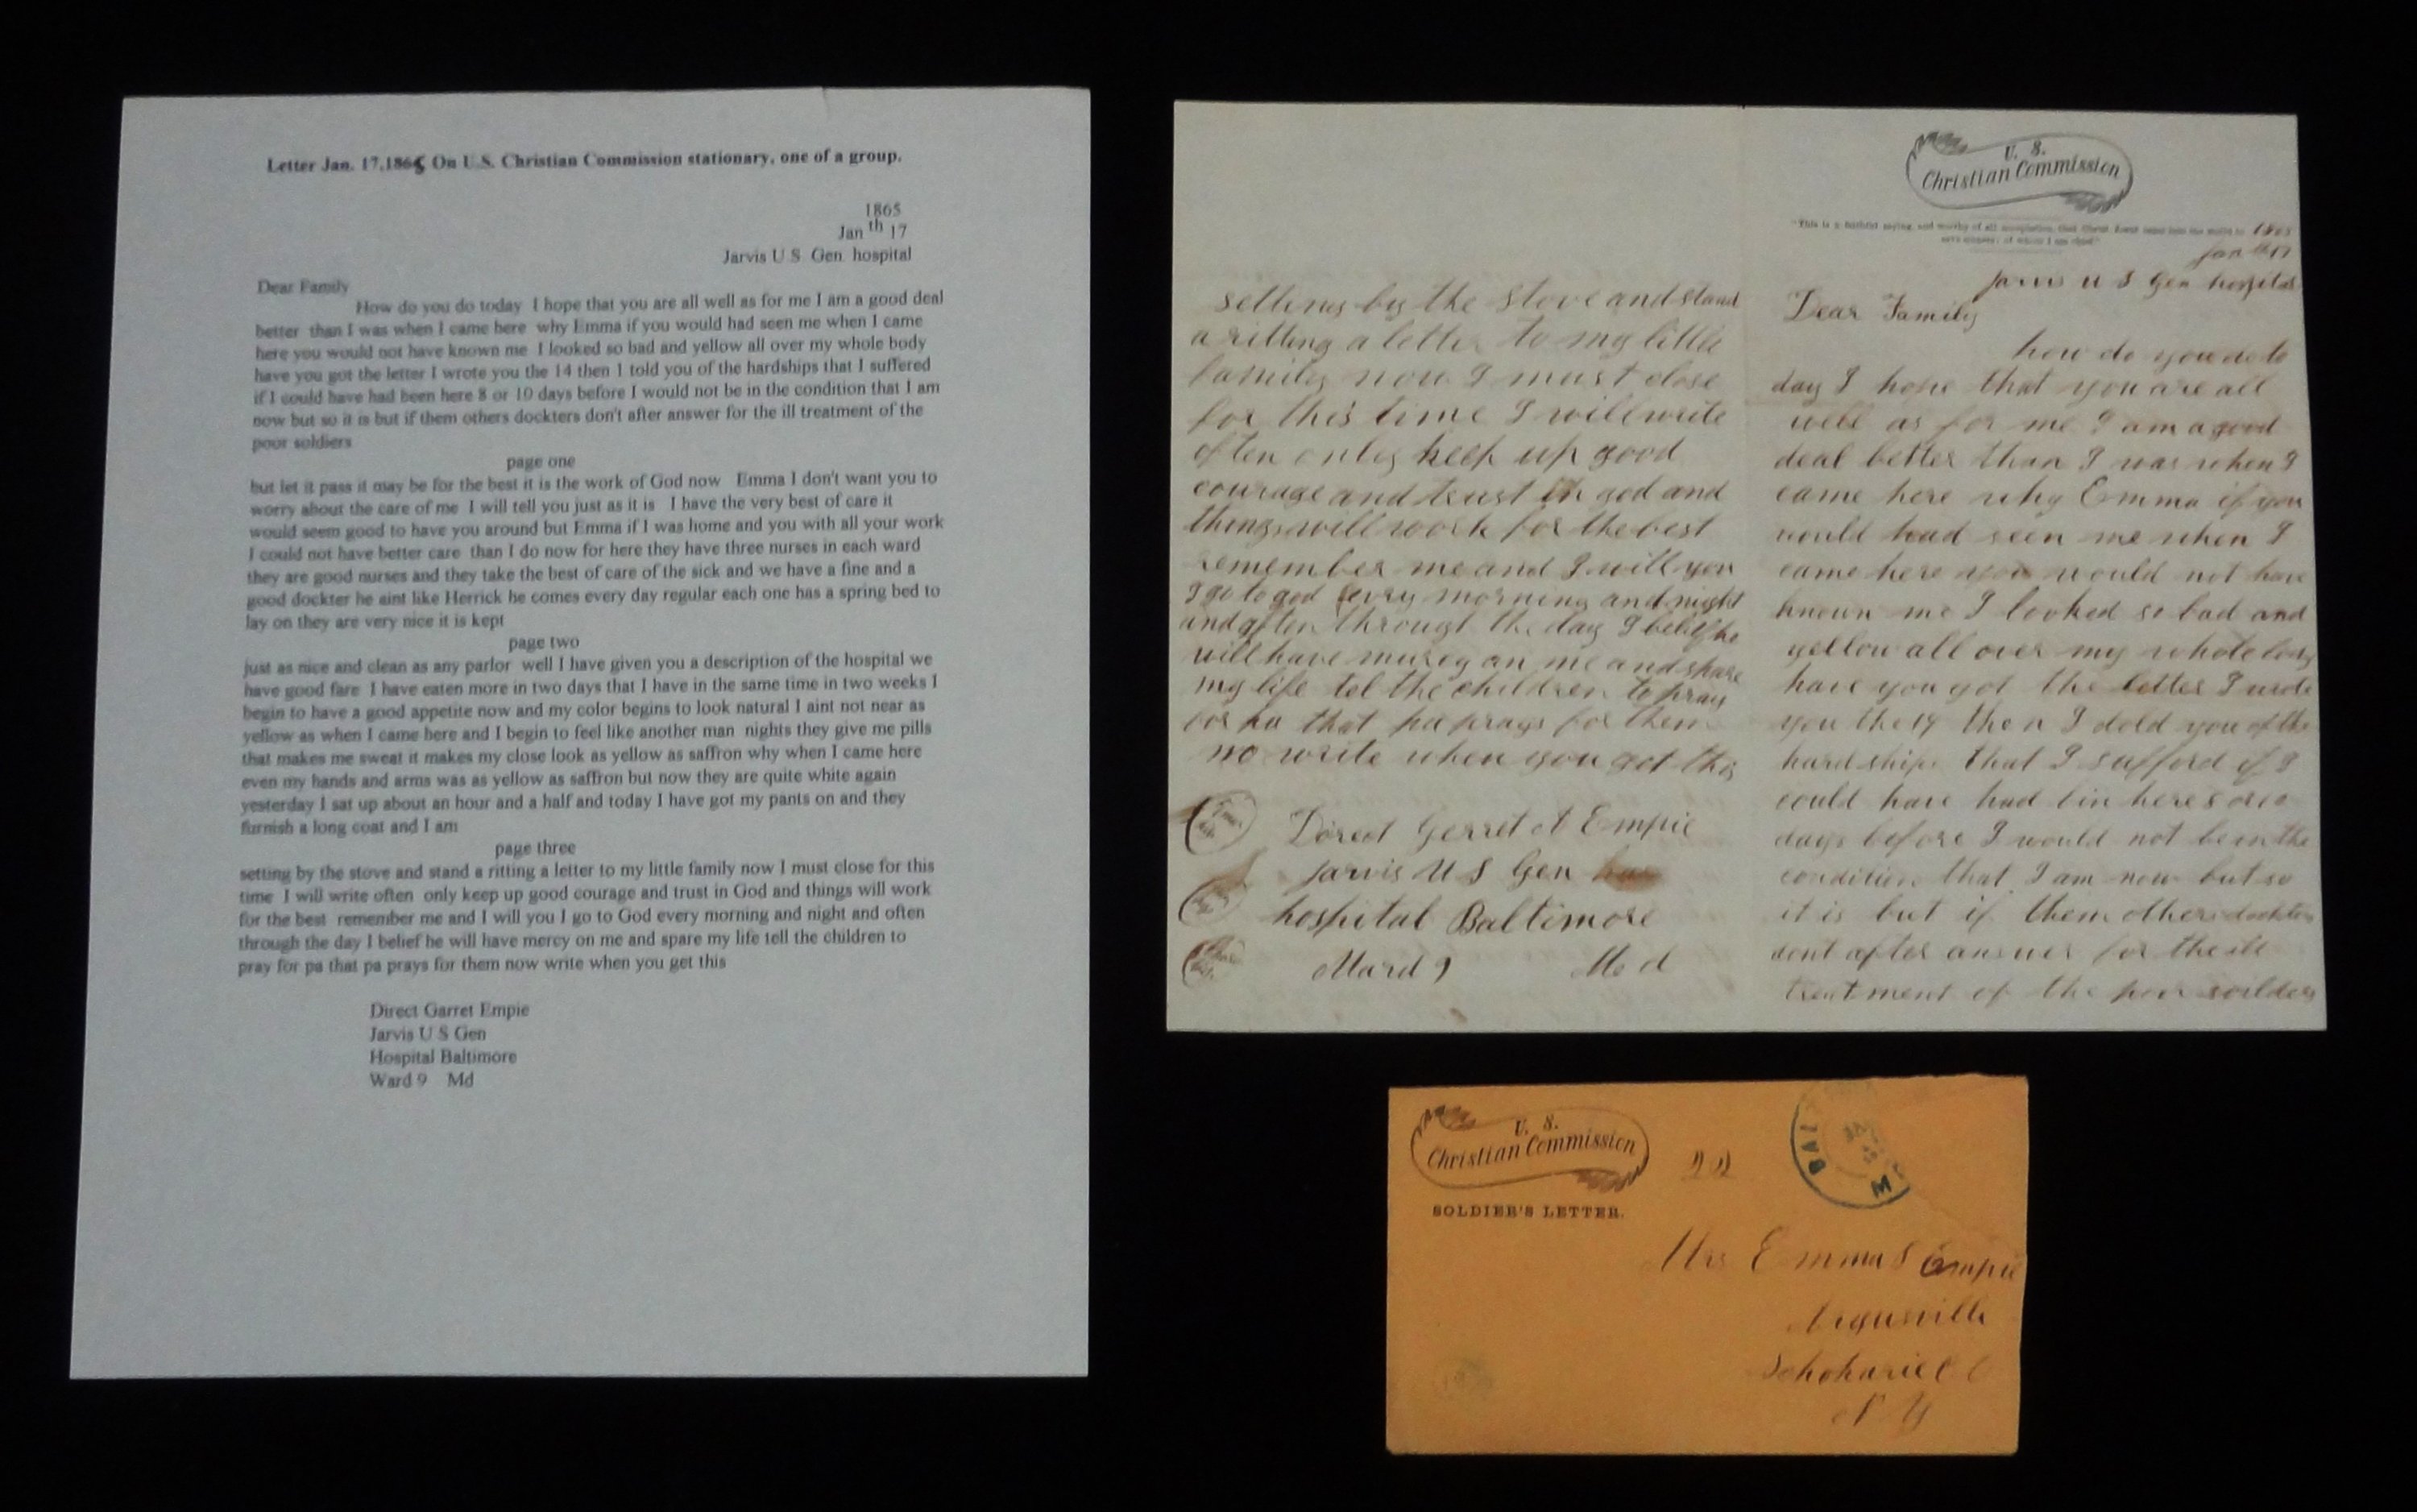 Letter Jan. 17,1865 On U.S. Christian Commission stationary, one of a group.
1865
Jan th 17
Jarvis U S Gen. hospital
Dear Family
How do you do today I hope that you are all well as for me I am a good deal
better than I was when I came here why Emma if you would had seen me when I came
here you would not have known me I looked so bad and yellow all over my whole body
have you got the letter I wrote you the 14 then I told you of the hardships that I suffered
if I could have had been here 8 or 10 days before I would not be in the condition that I am
now but so it is but if them others dockters don't after answer for the ill treatment of the
poor soldiers
page one
but let it pass it may be for the best it is the work of God now Emma I don't want you to
worry about the care of me I will tell you just as it is I have the very best of care it
would seem good to have you around but Emma if I was home and you with all your work
I could not have better care than I do now for here they have three nurses in each ward
they are good nurses and they take the best of care of the sick and we have a fine and a
good dockter he aint like Herrick he comes every day regular each one has a spring bed to
lay on they are very nice it is kept
page two
just as nice and clean as any parlor well I have given you a description of the hospital we
have good fare I have eaten more in two days that I have in the same time in two weeks I
begin to have a good appetite now and my color begins to look natural I aint not near as
yellow as when I came here and I begin to feel like another man nights they give me pills
that makes me sweat it makes my close look as yellow as saffron why when I came here
even my hands and arms was as yellow as saffron but now they are quite white again
yesterday I sat up about an hour and a half and today I have got my pants on and they
furnish a long coat and I am
page three
setting by the stove and stand a ritting a letter to my little family now I must close for this
time I will write often only keep up good courage and trust in God and things will work
for the best remember me and I will you I go to God every morning and night and often
through the day I belief he will have mercy on me and spare my life tell the children to
pray for pa that pa prays for them now write when you get this
Direct Garret Empie
Jarvis U S Gen
Hospital Baltimore
Ward 9 Md
setting by the stove and stand
a ritting a letter to my little
family now I must close
for this time I will write
often only keep up good
courage and trust in god and
things will work for the best
remember me and I will you
I go to god every morning and night
and often through the day I belief he
will have mursy on me and spare
my life tel the children to pray
for pa that pa prays for them
no write when you get this
Direct Gerret Empie
Jarvis U S Gen
hospital Baltimore
Ward 9 Md
U. S.
Christian Commission
"This is a faithful saying, and worthy of all acceptation, that Christ Jesus came into the world to
save sinners; of whom I am chief."
1865
Jan th 17
Jarvis U S Gen hospital
Dear Family
how do you do to
day I hope that you are all
well as for me I am a good
deal better than I was when I
came here why Emma if you
would had seen me when I
came here you would not have
known me I looked so bad and
yellow all over my whole body
have you got the letter I wrote
you the 14 then I told you of the
hardships that I sufford if I
could have had bin here 8 or 10
days before I would not be in the
condition that I am now but so
it is but if them others dockters
dont after answer for the ill
treatment of the poor soilders
U. S.
Christian Commission
SOLDIER'S LETTER.
BAL
M
Mrs Emma S Empie
Argusville
Schoharie C
N Y